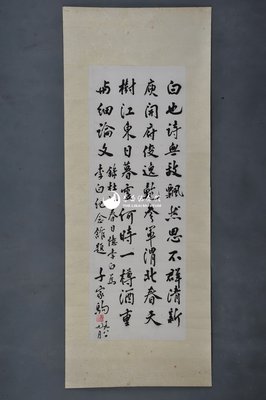 白也诗无敌飘然思不群清新
庾开府俊逸鲍参军渭北春天
树江东日暮云何时一樽酒重
与细论文
录杜甫春日忆李白为
李白纪念馆题 于家驹